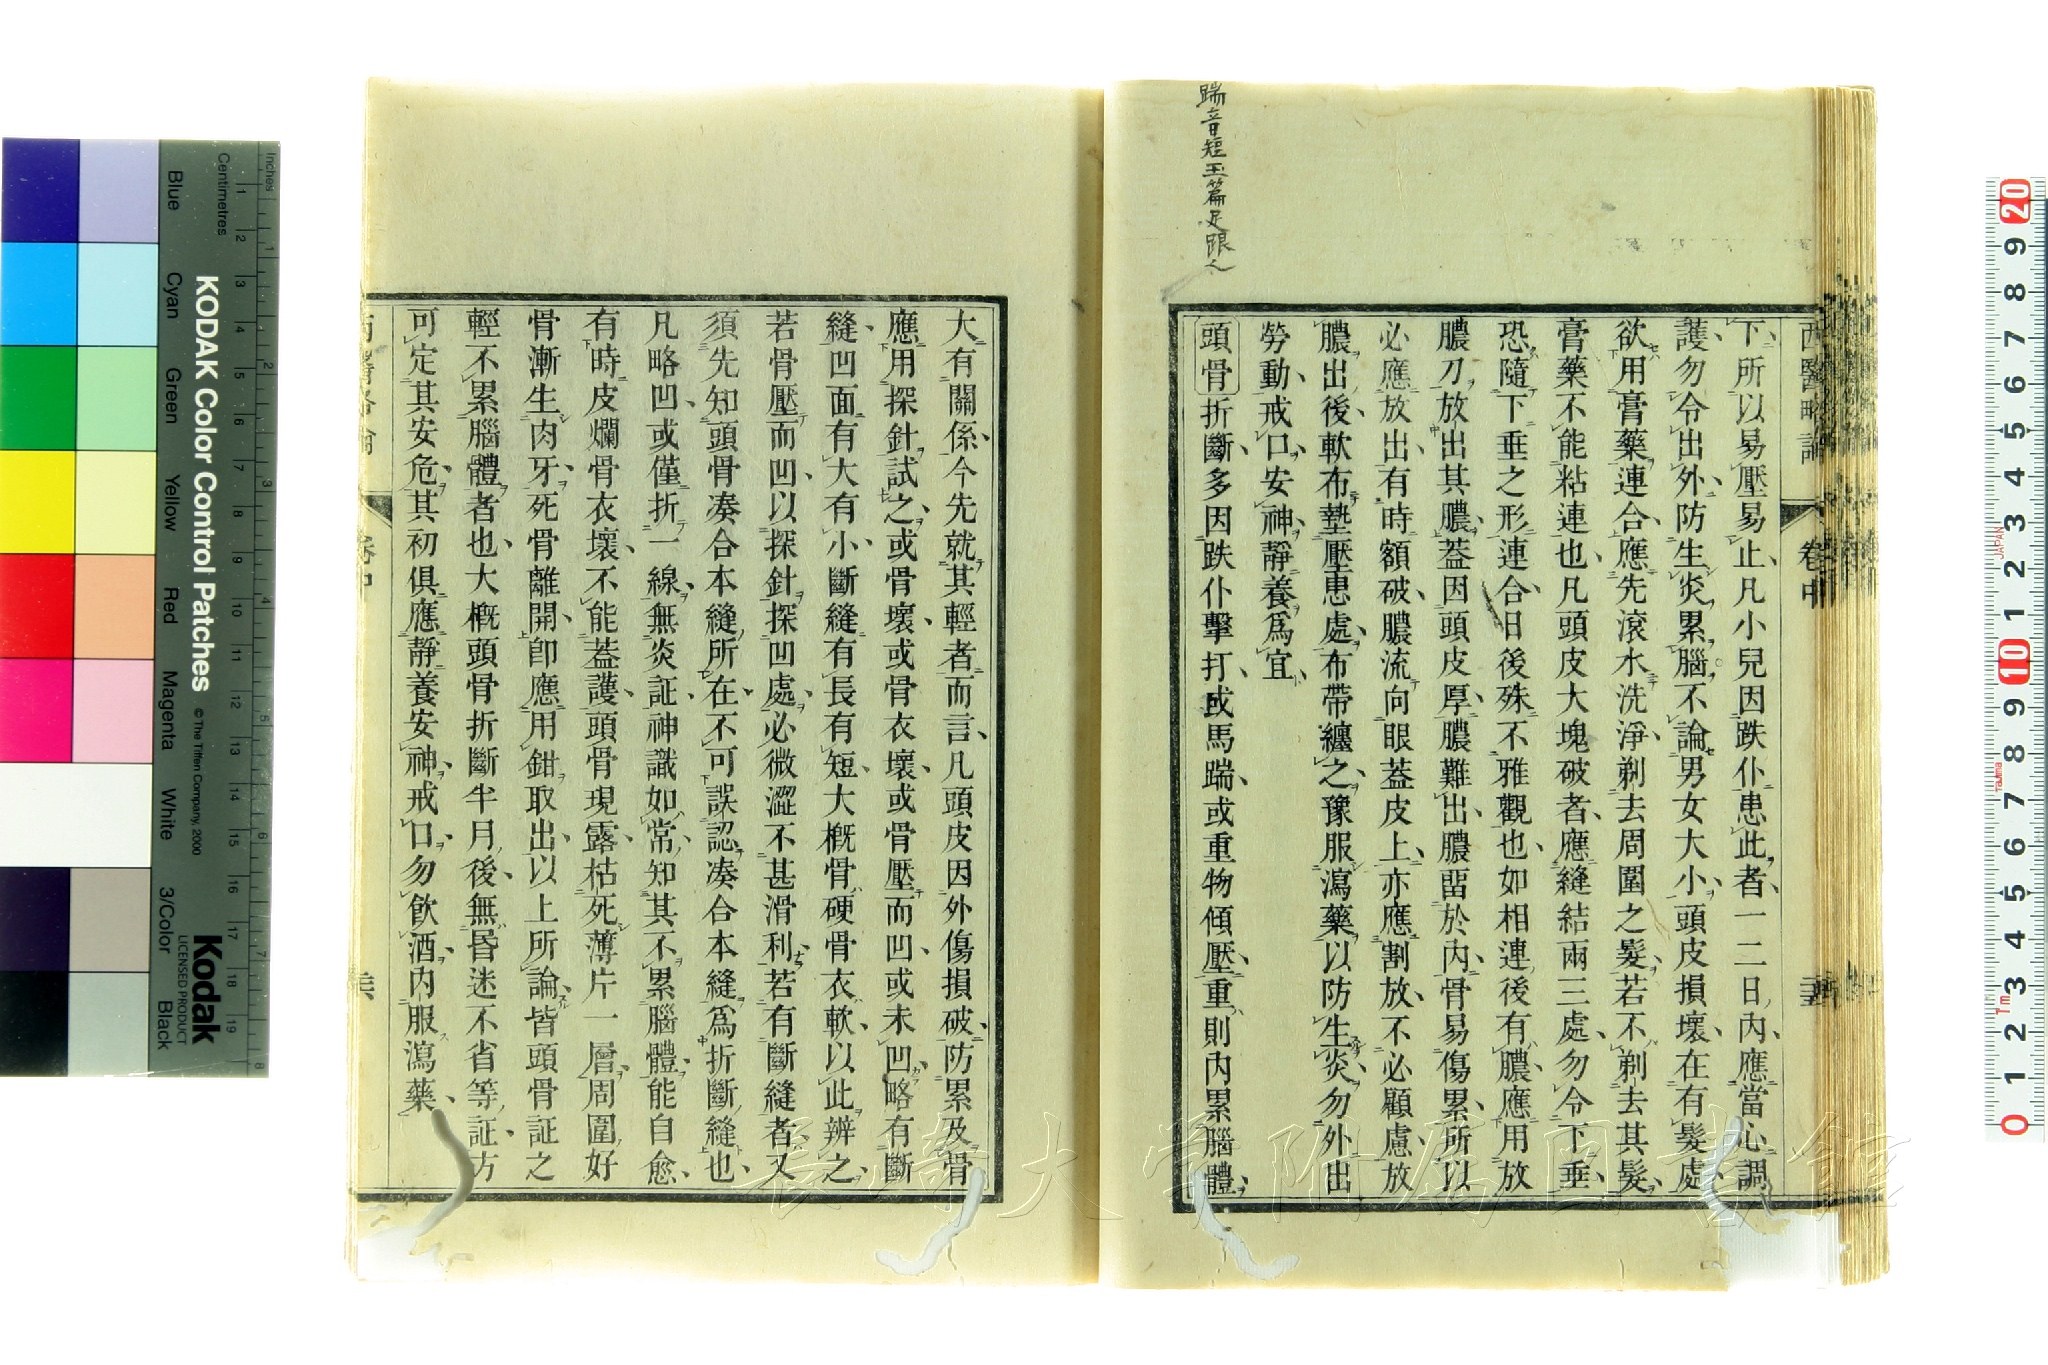 踹音短玉篇足跟也
西醫略論
卷中
下所以易壓易止凡小兒因跌仆患此者一二日內應當心調
護勿令出外防生炎累腦不論男女大小頭皮損壞在有髮處
欲用膏藥連合應先滾水洗淨剃去周圍之髮若不剃去其髮
膏藥不能粘連也凡頭皮大塊破者應縫結兩三處勿令下垂
恐隨下垂之形連合日後殊不雅觀也如相連後有膿應用放
膿刀放出其膿葢因頭皮厚膿難出膿畱於內骨易傷累所以
必應放出有時額破膿流向眼葢皮上亦應割放不必顧慮放
膿出後軟布墊壓患處布帶纏之豫服瀉藥以防生炎勿外出
勞動戒口安神靜養爲宜
頭骨折斷多因跌仆擊打或馬踹或重物傾壓重則內累腦體
大有關係今先就其輕者而言凡頭皮因外傷損破防累及骨
應用探針試之或骨壞或骨衣壞或骨壓而凹或未凹略有斷
縫凹面有大有小斷縫有長有短大概骨硬骨衣軟以此辨之
若骨壓而凹以探針探凹處必微澀不甚滑利若有斷縫者又
須先知頭骨湊合本縫所在不可誤認湊合本縫爲折斷縫也
凡略凹或僅折一線無炎証神識如常知其不累腦體能自愈
有時皮爛骨衣壞不能葢護頭骨現露枯死薄片一層周圍好
骨漸生肉牙死骨離開卽應用鉗取出以上所論皆頭骨証之
輕不累腦體者也大概頭骨折斷半月後無昏迷不省等証方
可定其安危其初俱應靜養安神戒口勿飲酒內服瀉藥
西醫略論
卷中
Inches
Centimetres
KODAK Color Control Patches
© The Tiffen Company, 2000
Kodak
LICENSED PRODUCT
Blue
Cyan
Green
Yellow
Red
Magenta
White
3/Color
Black
1 2 3 4 5 6 7 8 9 10 11 12 13 14 15 16 17 18 19
1 2 3 4 5 6 7 8
20 9 8 7 6 5 4 3 2 1 10 9 8 7 6 5 4 3 2 1 0
JAPAN
長崎大学附属図書館